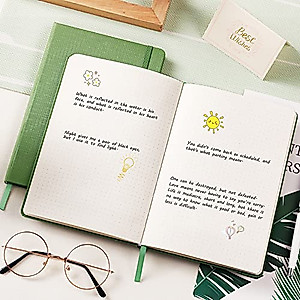 Best
Wishes
What is reflected in the water is his
face, and what is reflected in his heart
is his conduct.
Make give me a pair of black eyes,
but I use it to find light.
You didn't come back as scheduled, and
that's what parting means.
One can be destroyed, but not defeated.
Love means never having to say you're sorry.
Life is mediocre, short and long, but there is
no way to know what is good or bad, gain or
loss is difficult.